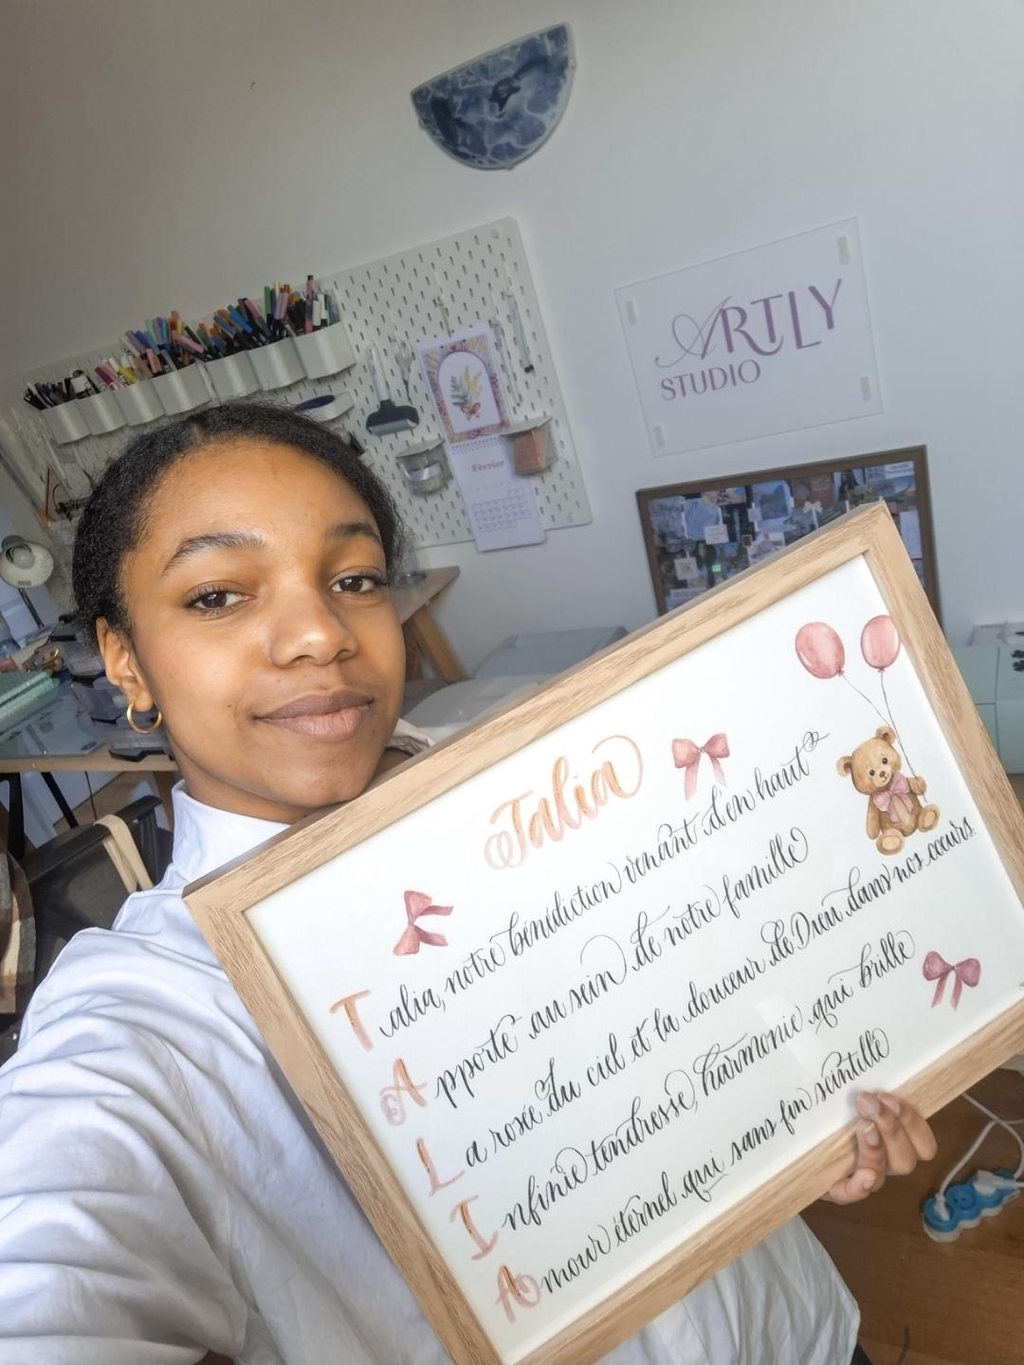 ARTLY
STUDIO
Février
Talia
Talia, notre bénédiction venant d'en haut
Apporte au sein de notre famille
La rosée du ciel et la douceur de Dieu dans nos cœurs.
Infinie tendresse, harmonie qui brille
Amour éternel qui sans fin scintille